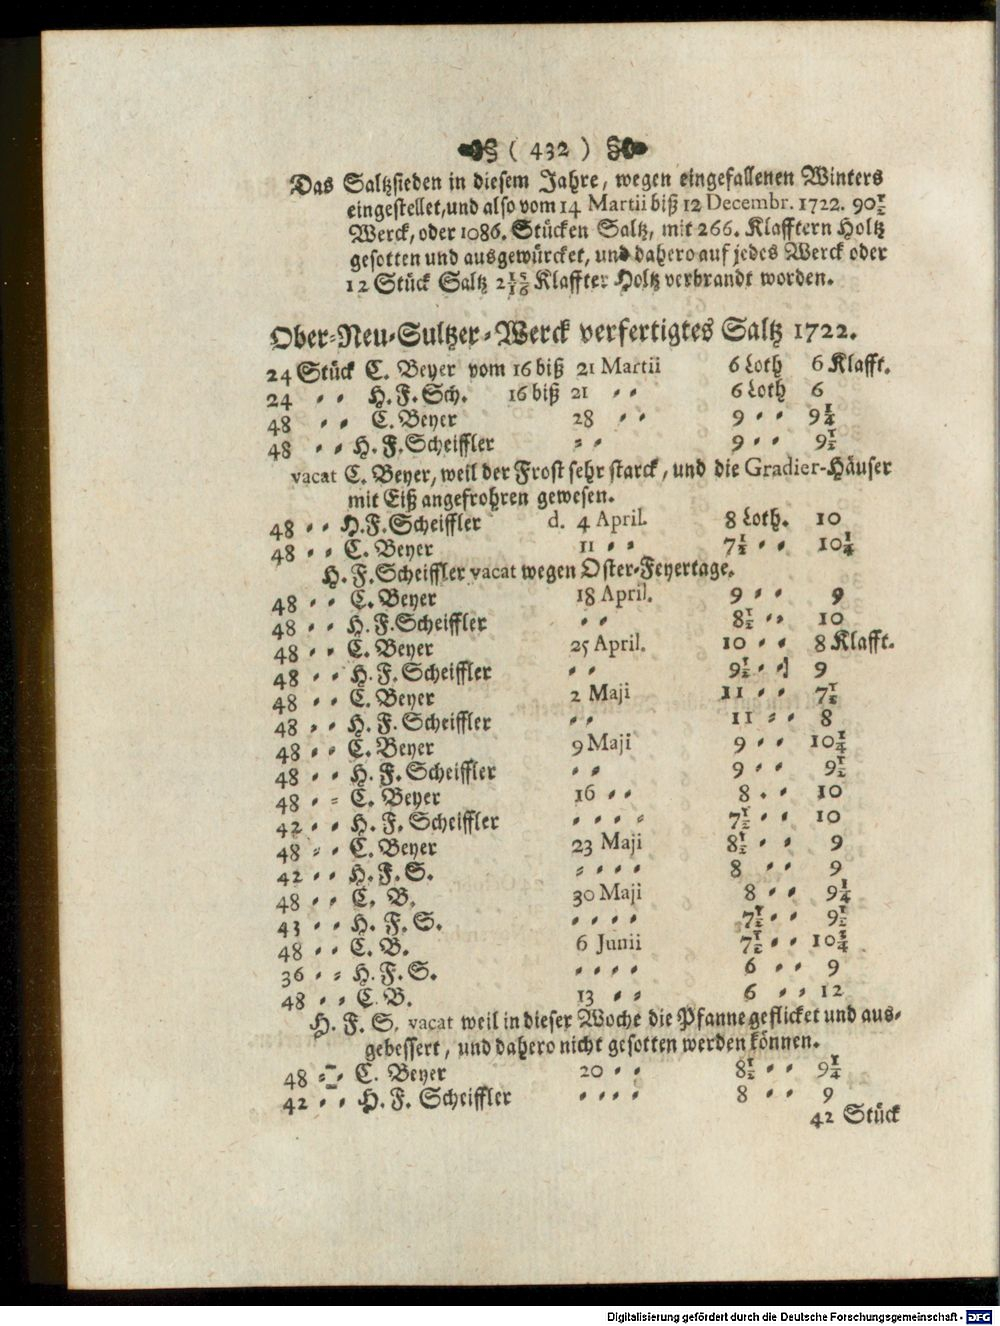 ( 432 )
Das Saltzsieden in diesem Jahre, wegen eingefallenen Winters
eingestellet, und also vom 14 Martii biß 12 Decembr. 1722. 90½
Werck, oder 1086. Stücken Saltz, mit 266. Klafftern Holtz
gesotten und ausgewürcket, und dahero auf jedes Werck oder
12 Stück Saltz 2 15/16 Klaffter Holtz verbrandt worden.
Ober-Neu-Sultzer-Werck verfertigtes Saltz 1722.
24 Stück C. Beyer vom 16 biß 21 Martii 6 Loth 6 Klafft.
24 = = H. F. Sch. 16 biß 21 = = 6 Loth 6
48 = = C. Beyer 28 = = 9 = = 9¼
48 = = H. F. Scheiffler = = 9 = = 9½
vacat C. Beyer, weil der Frost sehr starck, und die Gradier-Häuser
mit Eiß angefrohren gewesen.
48 = = H. F. Scheiffler d. 4 April. 8 Loth. 10
48 = = C. Beyer 11 = = 7½ = = 10¼
H. F. Scheiffler vacat wegen Oster-Feyertage.
48 = = C. Beyer 18 April. 9 = = 9
48 = = H. F. Scheiffler = = 8½ = = 10
48 = = C. Beyer 25 April. 10 = = 8 Klafft.
48 = = H. F. Scheiffler = = 9½ = = 9
48 = = C. Beyer 2 Maji 11 = = 7½
48 = = H. F. Scheiffler = = 11 = = 8
48 = = C. Beyer 9 Maji 9 = = 10¼
48 = = H. F. Scheiffler = = 9 = = 9½
48 = = C. Beyer 16 = = 8 = = 10
42 = = H. F. Scheiffler = = = = 7½ = = 10
48 = = C. Beyer 23 Maji 8½ = = 9
42 = = H. F. S. = = = = 8 = = 9
48 = = C. B. 30 Maji 8 = = 9¼
43 = = H. F. S. = = = = 7½ = = 9½
48 = = C. B. 6 Junii 7½ = = 10¾
36 = = H. F. S. = = = = 6 = = 9
48 = = C. B. 13 = = 6 = = 12
H. F. S. vacat weil in dieser Woche die Pfanne geflicket und aus-
gebessert, und dahero nicht gesotten werden können.
48 = = C. Beyer 20 = = 8½ = = 9¼
42 = = H. F. Scheiffler = = = = 8 = = 9
42 Stück
Digitalisierung gefördert durch die Deutsche Forschungsgemeinschaft - DFG